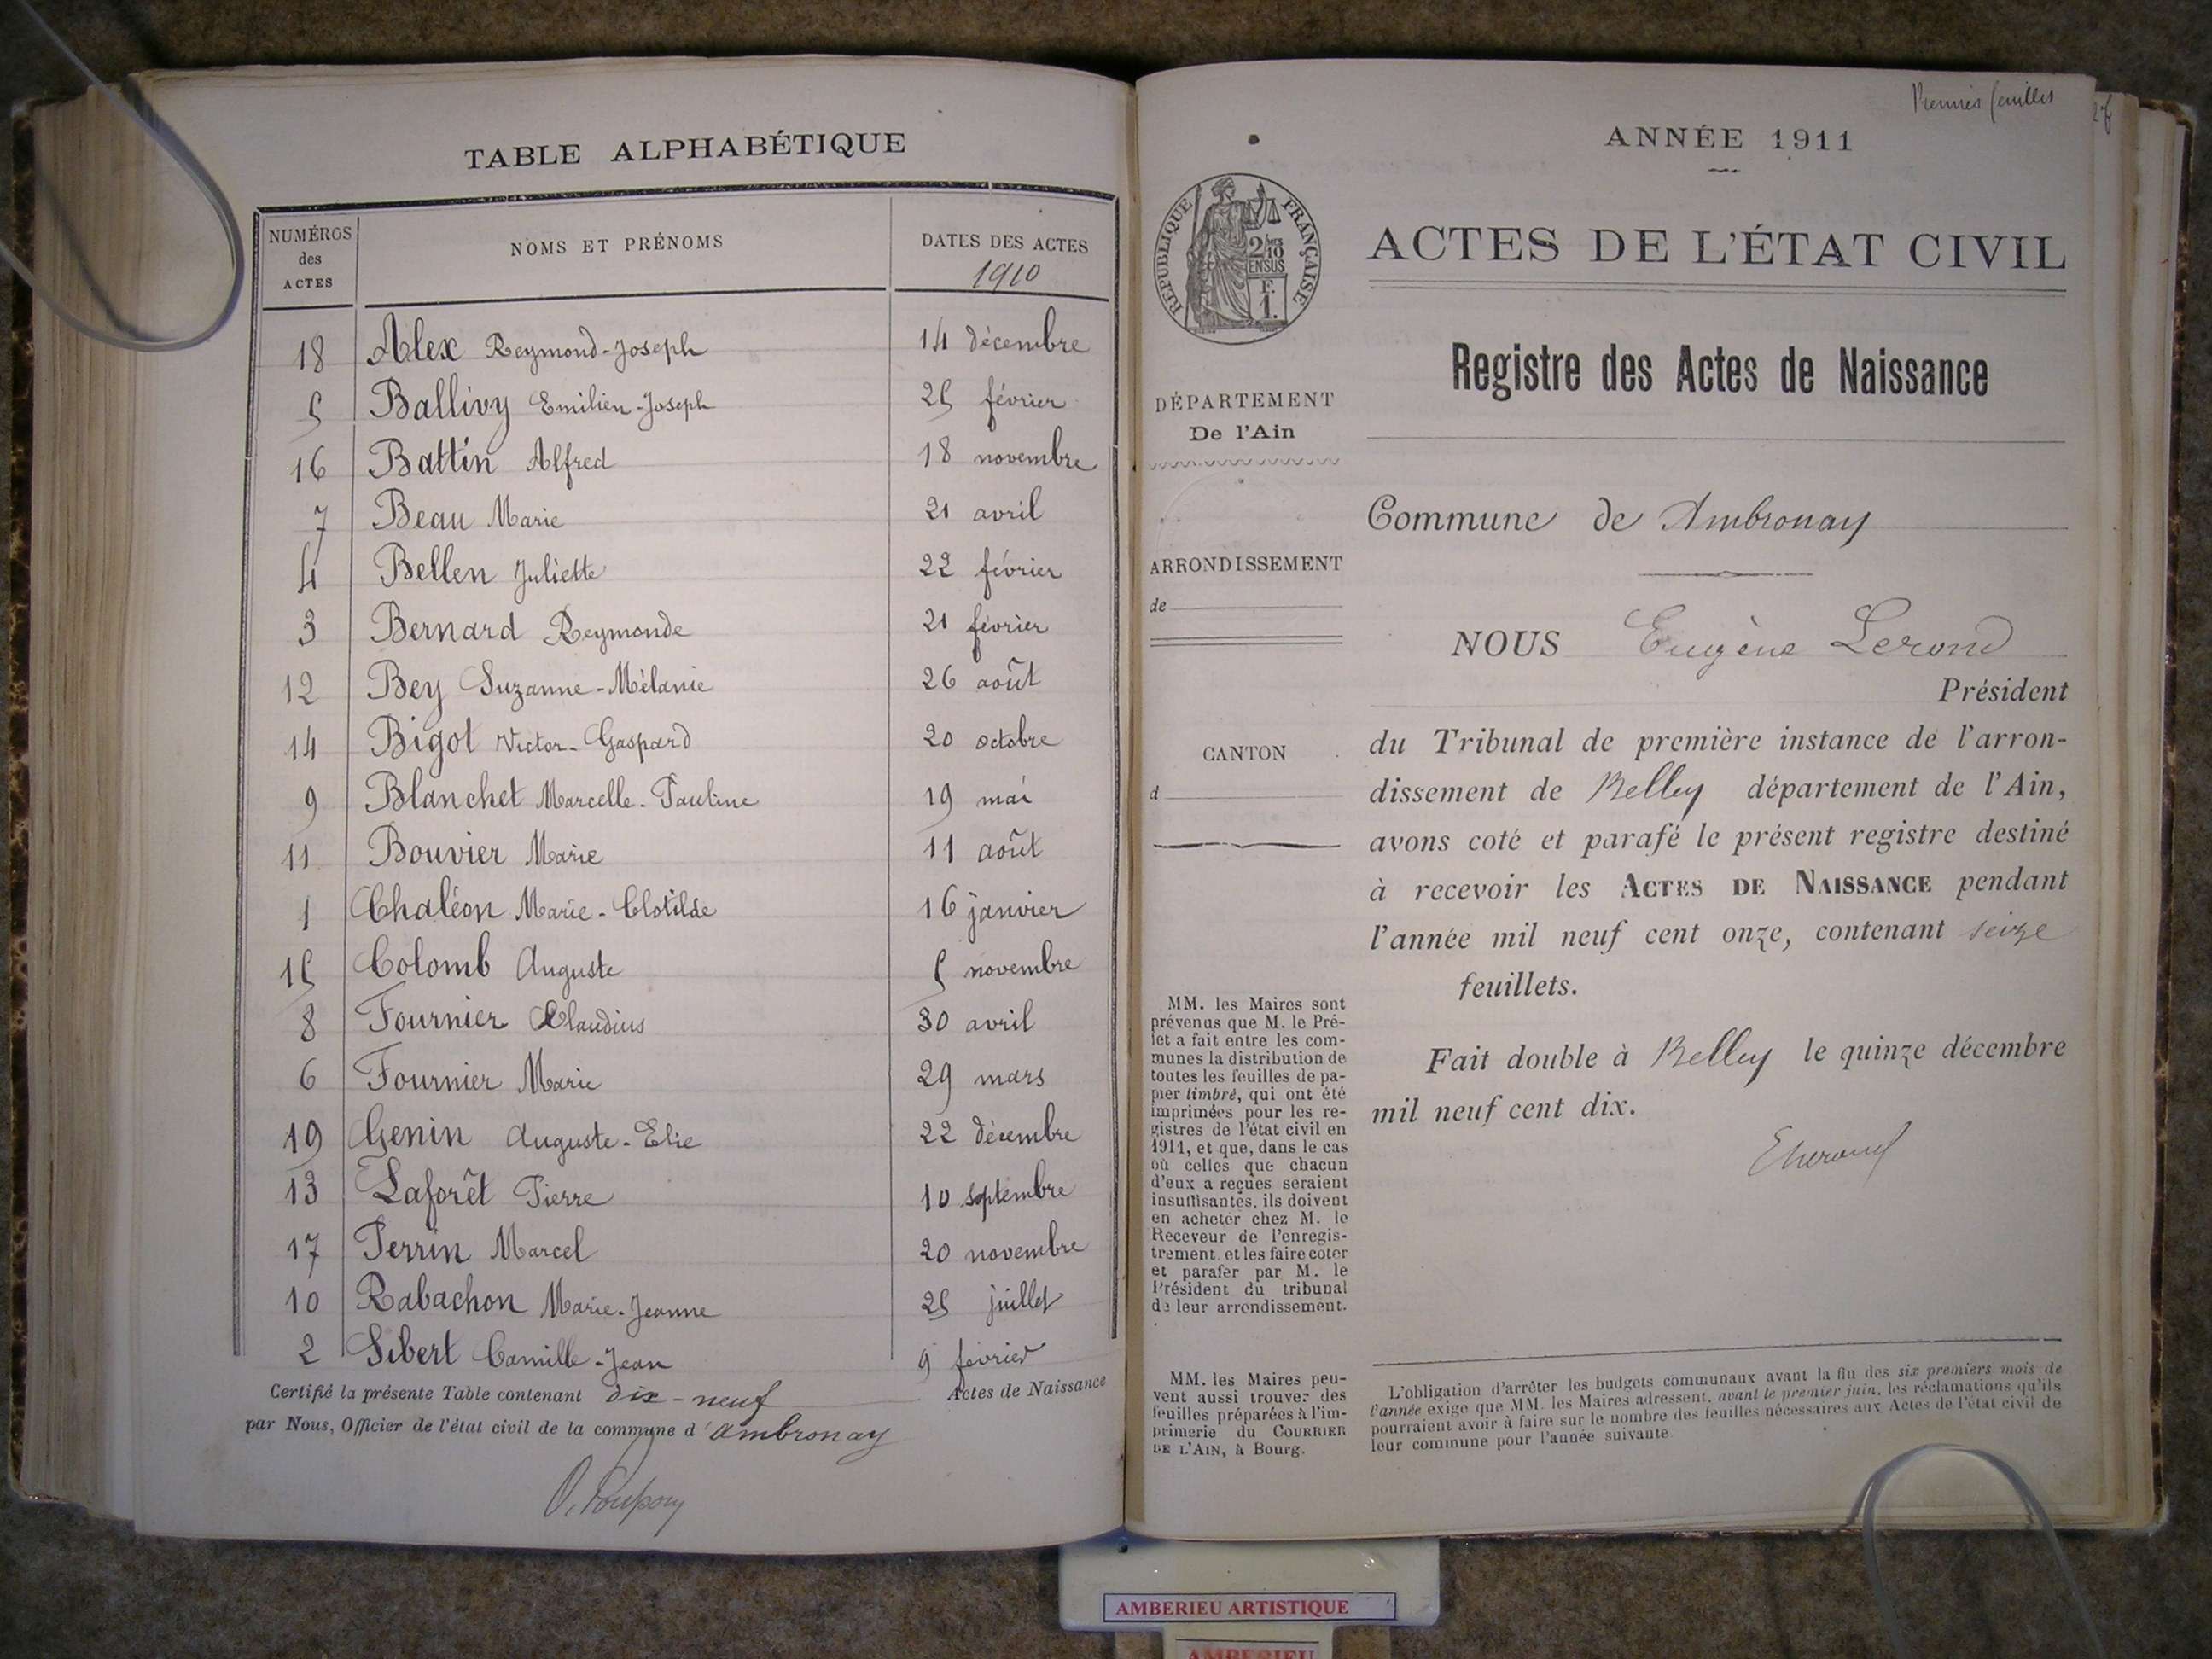 TABLE ALPHABÉTIQUE
NUMÉROS des ACTES
NOMS ET PRÉNOMS
DATES DES ACTES
1910
18 Alex Reymond-Joseph 14 décembre
5 Ballivy Emilien-Joseph 25 février
16 Battin Alfred 18 novembre
7 Beau Marie 21 avril
4 Bellen Juliette 22 février
3 Bernard Reymonde 21 février
12 Bey Suzanne-Mélanie 26 août
14 Bigot Victor-Gaspard 20 octobre
9 Blanchet Marcelle-Pauline 19 mai
11 Bouvier Marie 11 août
1 Chaléon Marie-Clotilde 16 janvier
15 Colomb Auguste 5 novembre
8 Fournier Claudius 30 avril
6 Fournier Marie 29 mars
19 Genin Auguste-Elie 22 décembre
13 Laforêt Pierre 10 septembre
17 Perrin Marcel 20 novembre
10 Rabachon Marie-Jeanne 25 juillet
2 Sibert Camille-Jean 9 février
Certifié la présente Table contenant dix-neuf Actes de Naissance
par Nous, Officier de l'état civil de la commune d'Ambronay
Premier feuillet
ANNÉE 1911
RÉPUBLIQUE FRANÇAISE
2/10
EN SUS
F.
1.
ACTES DE L'ÉTAT CIVIL
Registre des Actes de Naissance
DÉPARTEMENT
De l'Ain
ARRONDISSEMENT
de
CANTON
d
MM. les Maires sont
prévenus que M. le Pré-
fet a fait entre les com-
munes la distribution de
toutes les feuilles de pa-
pier timbré, qui ont été
imprimées pour les re-
gistres de l'état civil en
1911, et que, dans le cas
où celles que chacun
d'eux a reçues seraient
insuffisantes, ils doivent
en acheter chez M. le
Receveur de l'enregis-
trement, et les faire coter
et parafer par M. le
Président du tribunal
de leur arrondissement.
MM. les Maires peu-
vent aussi trouver des
feuilles préparées à l'im-
primerie du COURRIER
DE L'AIN, à Bourg.
Commune de Ambronay
NOUS Eugène Lerond
Président
du Tribunal de première instance de l'arron-
dissement de Belley département de l'Ain,
avons coté et parafé le présent registre destiné
à recevoir les ACTES DE NAISSANCE pendant
l'année mil neuf cent onze, contenant seize
feuillets.
Fait double à Belley le quinze décembre
mil neuf cent dix.
L'obligation d'arrêter les budgets communaux avant la fin des six premiers mois de
l'année exige que MM. les Maires adressent, avant le premier juin, les réclamations qu'ils
pourraient avoir à faire sur le nombre des feuilles nécessaires aux Actes de l'état civil de
leur commune pour l'année suivante
AMBERIEU ARTISTIQUE
AMBERIEU